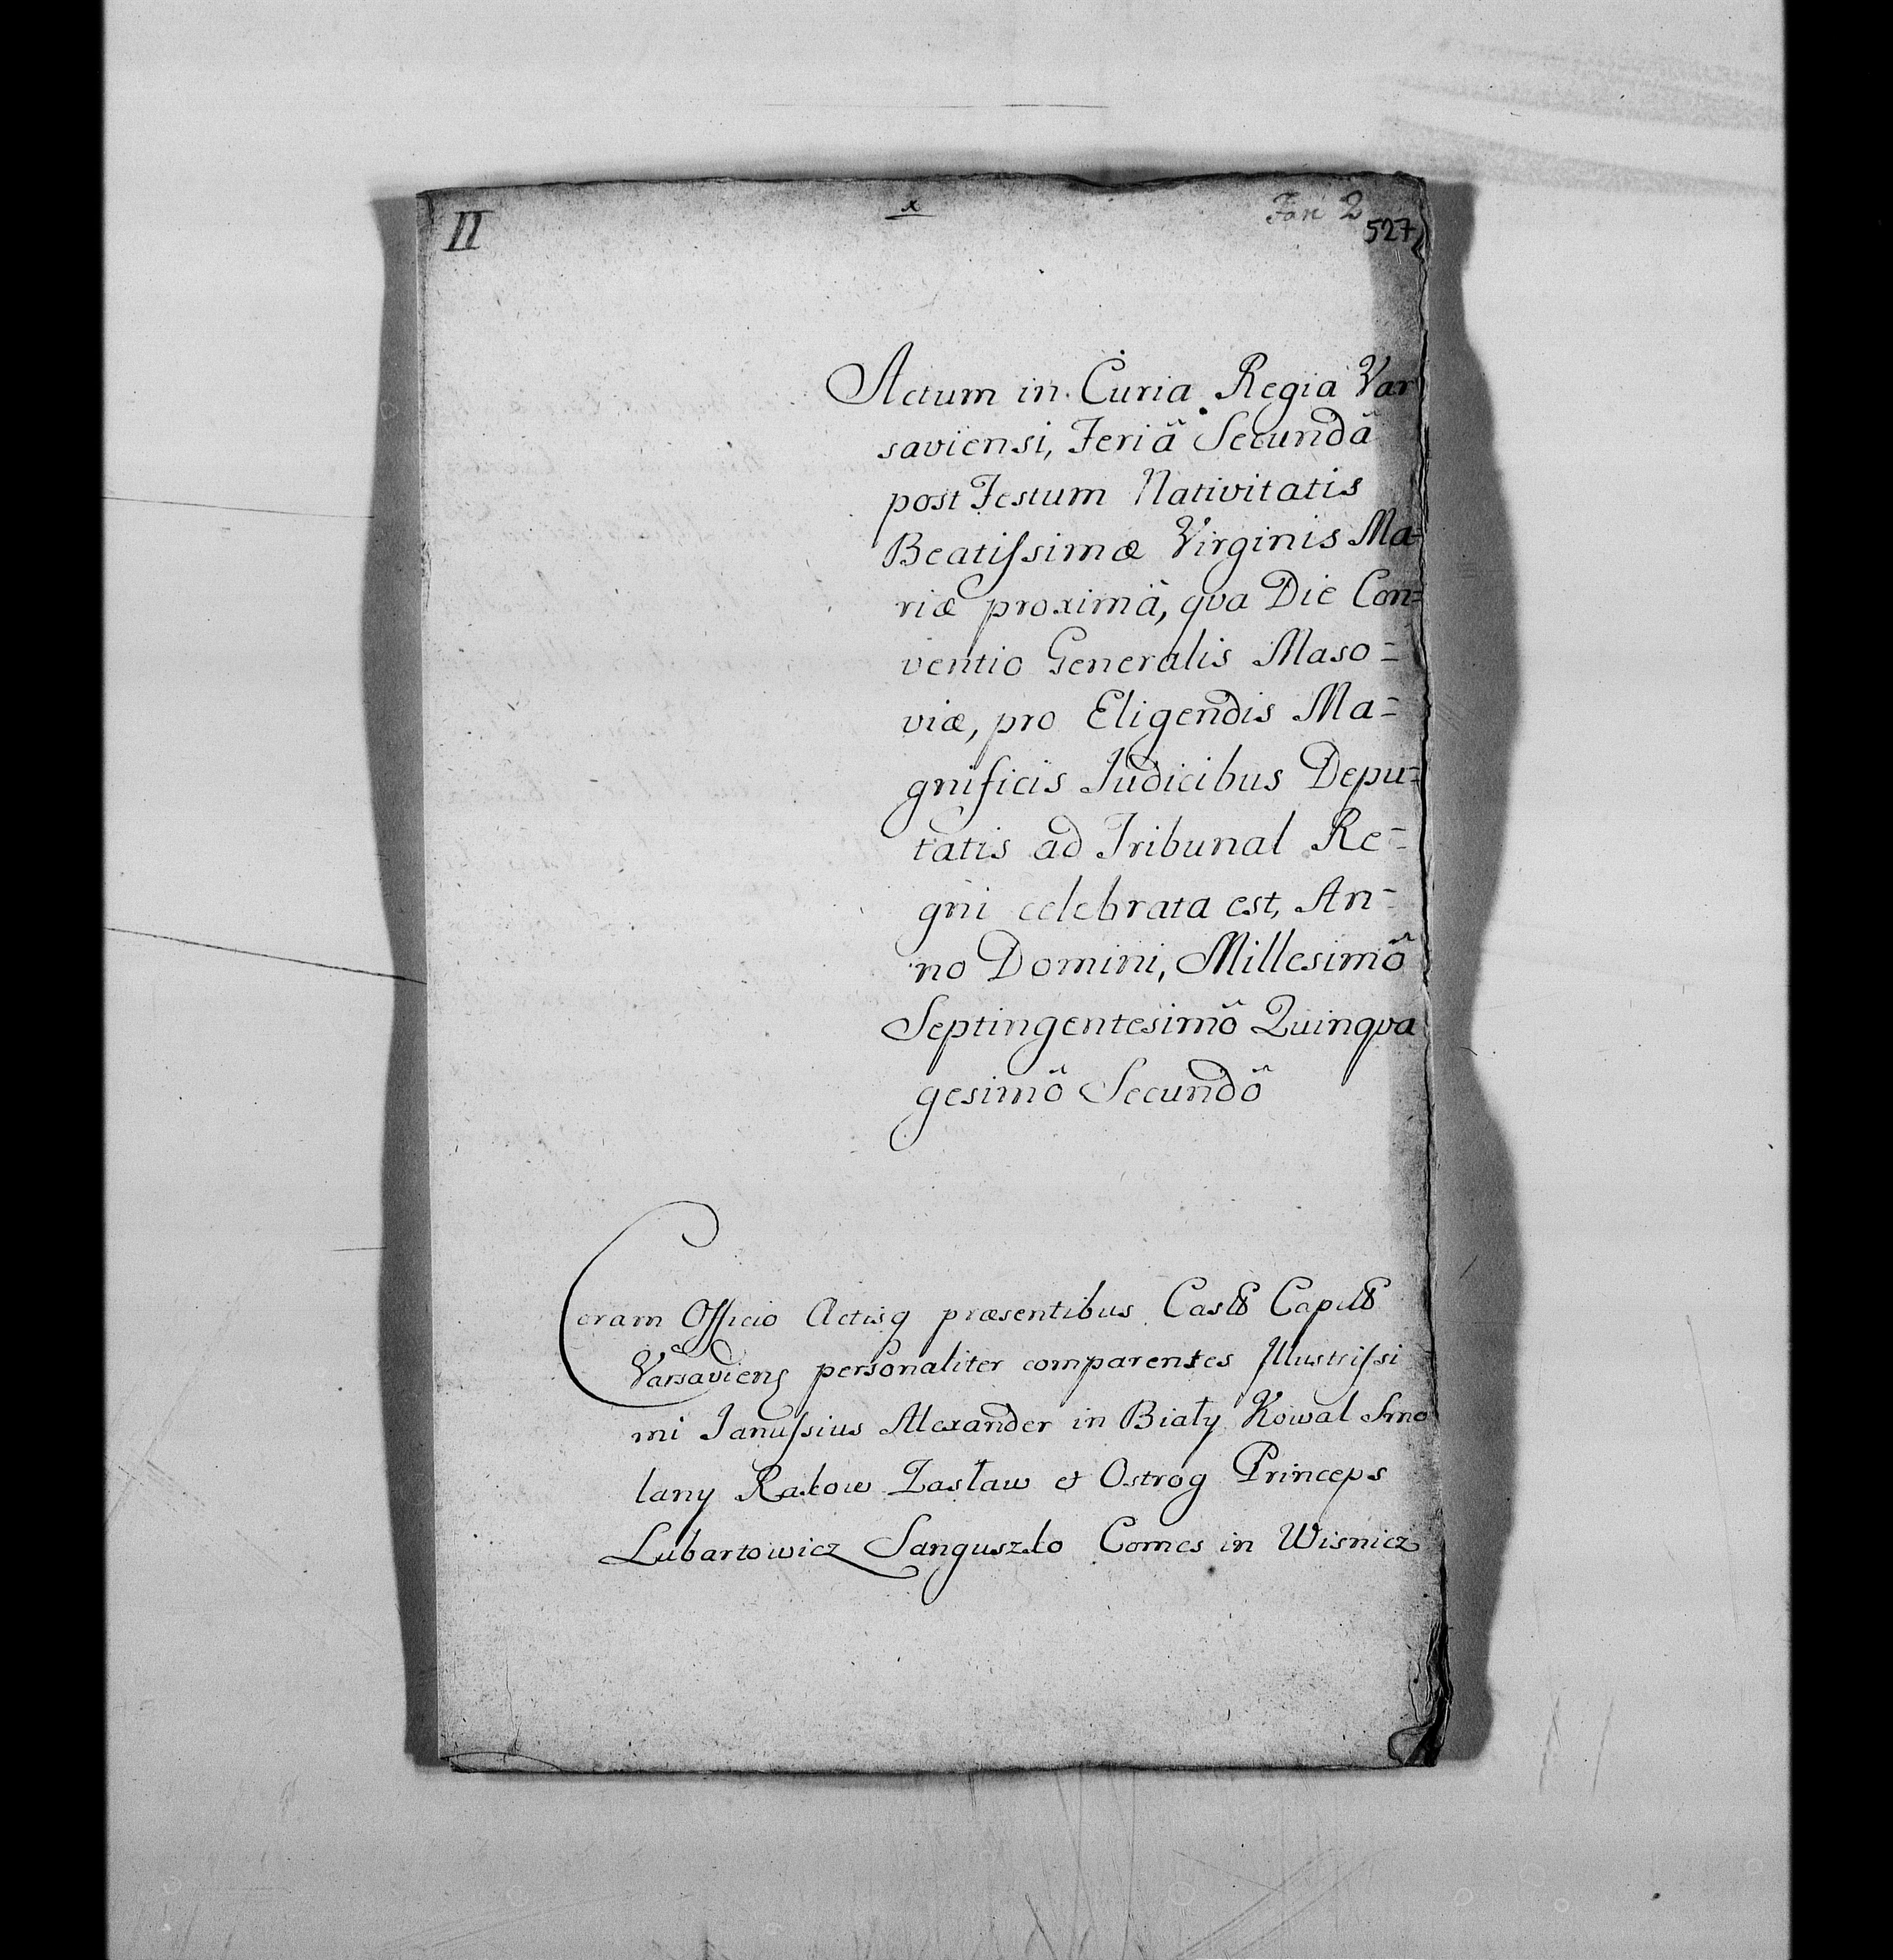 II
x
Fan 2
527
Actum in Curia Regia Var
saviensi, Feriâ Secundâ
post Festum Nativitatis
Beatiſsimæ Virginis Ma=
riæ proximâ, qva Die Con=
ventio Generalis Maso=
viæ, pro Eligendis Ma=
gnificis Judicibus Depu=
tatis ad Tribunal Re=
gni celebrata est, An=
no Domini, Millesimô
Septingentesimô Quinqva
gesimô Secundô
Coram Officio Actisq præsentibus
Varsaviens personaliter comparentes Jllustriſsi
mi Januſsius Alexander in Biały Kowal Smo
lany Rakow Zasław et Ostrog Princeps
Lubartowicz Sanguszko Comes in Wisnicz